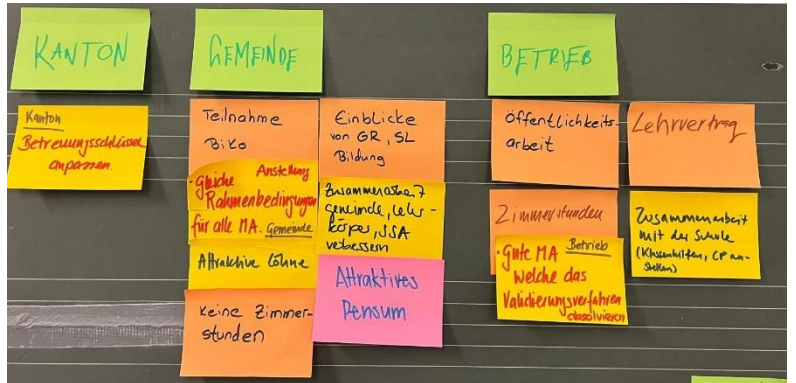 KANTON
GEMEINDE
BETRIEB
Kanton
Betreuungsschlüssel
anpassen
Teilnahme
BiKo
Anstellung
• Gleiche
Rahmenbedingungen
für alle MA. Gemeinde
Attraktive Löhne
Keine Zimmer-
stunden
Einblicke
von GR, SL
Bildung
Zusammenarbeit
gemeinde, Lehr-
körper, SSA
verbessern
Attraktives
Pensum
Öffentlichkeits-
arbeit
Zimmerstunden
• Gute MA Betrieb
welche das
Validierungsverfahren
absolvieren
Lehrvertrag
Zusammenarbeit
mit der Schule
(Klassenhilfen, CP an-
stellen)